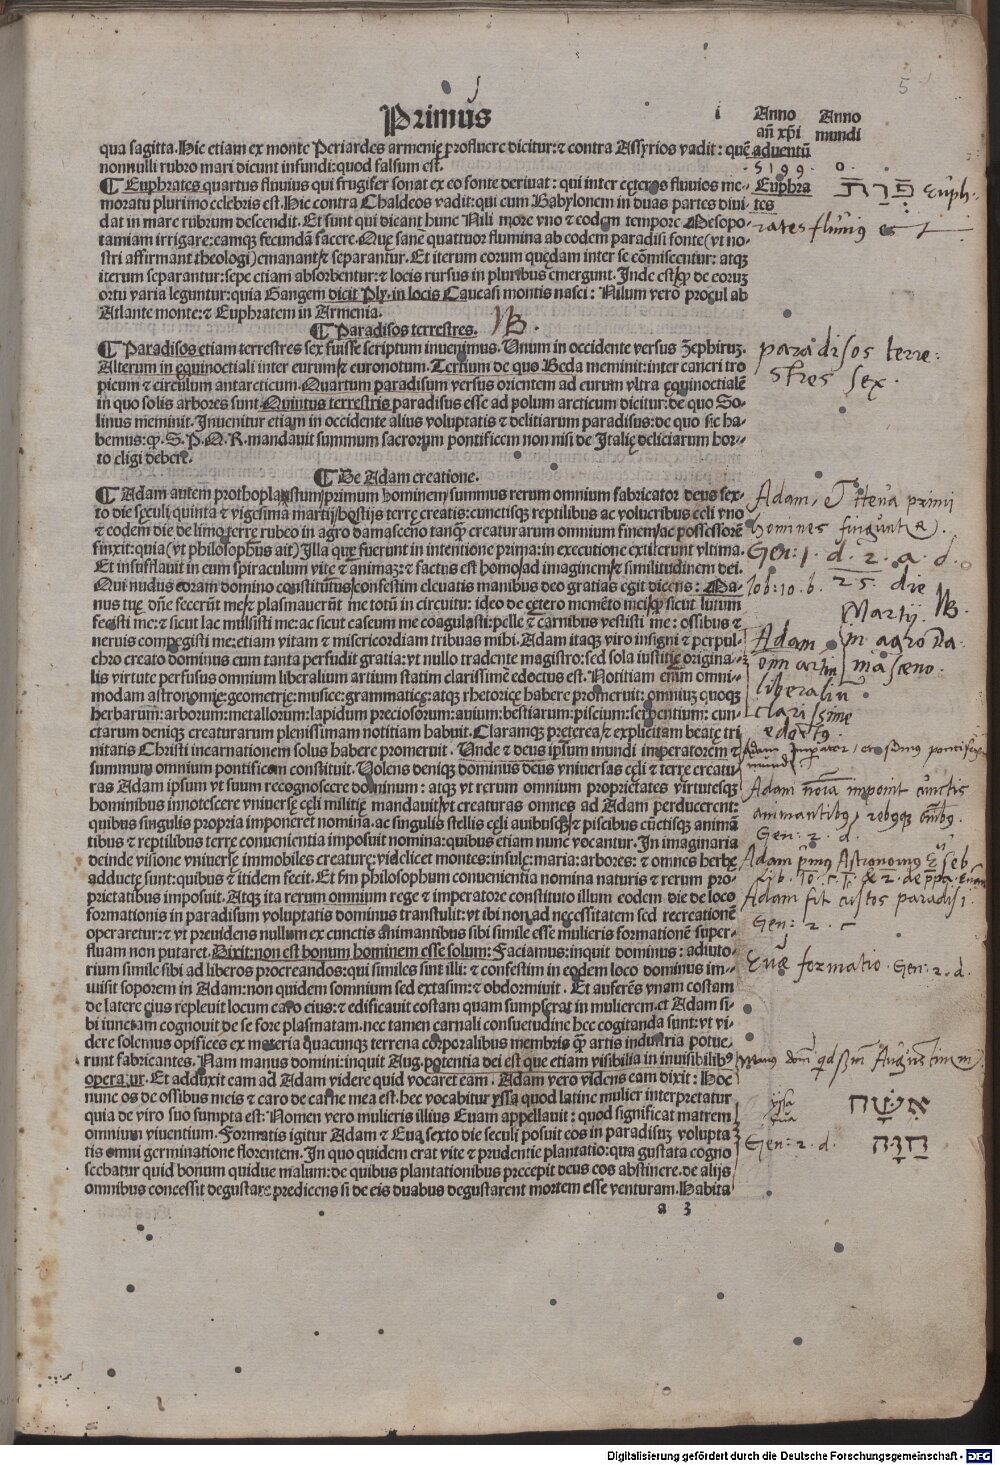 5
Primus
i
Anno añ xp̄i aduentū
Anno mundi
5199.
o.
qua sagitta. Hic etiam ex monte Periardes armenię profluere dicitur: ⁊ contra Assyrios vadit: quē
nonnulli rubro mari dicunt infundi: quod falsum est.
¶ Euphrates quartus fluuius qui frugifer sonat ex eo fonte deriuat: qui inter cęteros fluuios me-
moratu plurimo celebris est. Hic contra Chaldeos vadit: qui cum Babylonem in duas partes diui
dat in mare rubrum descendit. Et sunt qui dicant hunc Nili more vno ⁊ eodem tempore Mesopo-
tamiam irrigare: eamqȝ fecundā facere. Que sane quattuor flumina ab eodem paradisi fonte (vt no-
stri affirmant theologi) emanant ⁊ separantur. Et iterum eorum quędam inter se cōmiscentur: atqȝ
iterum separantur: sepe etiam absorbentur: ⁊ locis rursus in pluribus emergunt. Inde est qȝ de eorum
ortu varia leguntur: quia Gangem dicit Ply. in locis Caucasi montis nasci: Nilum vero procul ab
Atlante monte: ⁊ Euphratem in Armenia.
Euphra
tes
פְּרָת Euph-
rates fluuius est
¶ Paradisos terrestres. NB.
¶ Paradisos etiam terrestres sex fuisse scriptum inuenimus. Unum in occidente versus Zephirum.
Alterum in equinoctiali inter eurum ⁊ euronotum. Tertium de quo Beda meminit: inter cancri tro
picum ⁊ circulum antarcticum. Quartum paradisum versus orientem ad eurum vltra equinoctialē
in quo solis arbores sunt. Quintus terrestris paradisus esse ad polum arcticum dicitur: de quo So-
linus meminit. Inuenitur etiam in occidente alius voluptatis ⁊ delitiarum paradisus: de quo sic ha-
bemus: qȝ S. P. Q. R. mandauit summum sacrorum pontificem non nisi de Italię deliciarum hor-
to eligi debere.
paradisos terre:
stres sex.
¶ De Adam creatione.
¶ Adam autem prothoplastum primum hominem summus rerum omnium fabricator deus sex-
to die seculi quinta ⁊ vigesima martij hostijs terre creatis: cunctisqȝ reptilibus ac volucribus celi vno
⁊ eodem die de limo terre rubeo in agro damasceno tanqȝ creaturarum omnium finem ac possessorē
finxit: quia (vt philosophus ait) Illa que fuerunt in intentione prima: in executione extiterunt vltima.
Et insufflauit in eum spiraculum vite ⁊ animam: ⁊ factus est homo ad imaginem ⁊ similitudinem dei.
Qui nudus coram domino constitutus confestim eleuatis manibus deo gratias egit dicens: Ma-
nus tue dn̄e fecerūt me ⁊ plasmauerūt me totū in circuitu: ideo de cętero memēto mei qȝ sicut lutum
fecisti me: ⁊ sicut lac mulsisti me: ac sicut caseum me coagulasti: pelle ⁊ carnibus vestisti me: ossibus ⁊
neruis compegisti me: etiam vitam ⁊ misericordiam tribuas mihi. Adam itaqȝ viro insigni ⁊ perpul-
chro creato dominus eum tanta perfudit gratia: vt nullo tradente magistro: sed sola iustitię origina-
lis virtute perfusus omnium liberalium artium statim clarissime edoctus est. Notitiam enim omni-
modam astronomie: geometrie: musice: grammatice: atqȝ rhetorice habere promeruit: omnium quoqȝ
herbarum: arborum: metallorum: lapidum preciosorum: auium: bestiarum: piscium: serpentium: cun-
ctarum denique creaturarum plenissimam notitiam habuit. Claramqȝ preterea ⁊ explicitam beate tri
nitatis Christi incarnationem solus habere promeruit. Unde ⁊ deus ipsum mundi imperatorem ⁊
summum omnium pontificem constituit. Uolens denique dominus deus vniuersas celi ⁊ terre creatu
ras Adam ipsum vt suum recognoscere dominum: atqȝ vt rerum omnium proprietates virtutesqȝ
hominibus innotescere vniuerse celi militie mandauit vt creaturas omnes ad Adam perducerent:
quibus singulis propria imponeret nomina. ac singulis stellis celi auibusqȝ ⁊ piscibus cūctisqȝ animā
tibus ⁊ reptilibus terre conuenientia imposuit nomina: quibus etiam nunc vocantur. In imaginaria
deinde visione vniuerse immobiles creature: videlicet montes: insule: maria: arbores: ⁊ omnes herbe
adducte sunt: quibus ⁊ itidem fecit. Et sm̄ philosophum conuenientia nomina naturis ⁊ rerum pro-
prietatibus imposuit. Atqȝ ita rerum omnium rege ⁊ imperatore constituto illum eodem die de loco
formationis in paradisum voluptatis dominus transtulit: vt ibi non ad necessitatem sed recreationē
operaretur: ⁊ vt preuidens nullum ex cunctis animantibus sibi simile esse mulieris formationē super-
fluam non putaret. Dixit: non est bonum hominem esse solum: Faciamus: inquit dominus: adiuto-
rium simile sibi ad liberos procreandos: qui similes sint illi: ⁊ confestim in eodem loco dominus im-
misit soporem in Adam: non quidem somnium sed extasim: ⁊ obdormiuit. Et auferēs vnam costam
de latere eius repleuit locum caro eius: ⁊ edificauit costam quam sumpserat in mulierem. et Adam si-
bi iunctam cognouit de se fore plasmatam. nec tamen carnali consuetudine hec cogitanda sunt: vt vi-
dere solemus opifices ex materia quacunqȝ terrena corporalibus membris qȝ artis industria potue-
runt fabricantes. Nam manus domini: inquit Aug. potentia dei est que etiam visibilia in inuisibilibȝ
operatur. Et adduxit eam ad Adam videre quid vocaret eam. Adam vero videns eam dixit: Hoc
nunc os de ossibus meis ⁊ caro de carne mea est. hec vocabitur yssa quod latine mulier interpretatur
quia de viro suo sumpta est: Nomen vero mulieris illius Euam appellauit: quod significat matrem
omnium viuentium. Formatis igitur Adam ⁊ Eua sexto die seculi posuit eos in paradisum volupta
tis omni germinatione florentem. In quo quidem erat vite ⁊ prudentie plantatio: qua gustata cogno
scebatur quid bonum quidue malum: de quibus plantationibus precepit deus eos abstinere. de alijs
omnibus concessit degustare predicens si de eis duabus degustarent mortem esse venturam. Habita
a 3
Adam, ⁊ Heua primi
homines finguntur.
Gen: 1. d. 2. a. d.
Iob: 10. b. 25. die
Martij. NB.
in agro Da
masceno.
Adam
omn artiū
liberaliū
clarissime
edoctus
Adam Imperator, ac summus pontifex
mundi
Adam noīa imponit cunctis
animantibus, rebusque omībus.
Gen: 2. d.
Adam prīmus Astronomus
Adam fit custos paradisi.
Gen: 2. c
Euę formatio. Gen: 2. d.
Manus domī quid sm̄ Augustinum
yssa
Eua
אִשָּׁה
Gen: 2. d.
חַוָּה
Digitalisierung gefördert durch die Deutsche Forschungsgemeinschaft - DFG